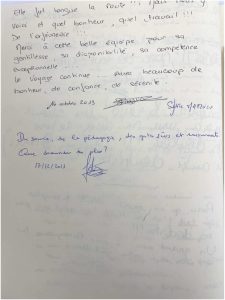 Elle fut longue la route !!!, mais nous y
voici et quel bonheur, quel travail !!!
De l'orfèvrerie !!!
Merci à cette belle équipe pour sa
gentillesse, sa disponibilité, sa compétence
exceptionnelle.
Le voyage continue ... avec beaucoup de
bonheur, de confiance, de sérénité.
octobre 2023
Du sourire, de la pédagogie, des gestes sûrs et rassurants
Que demander de plus?
17/12/2023